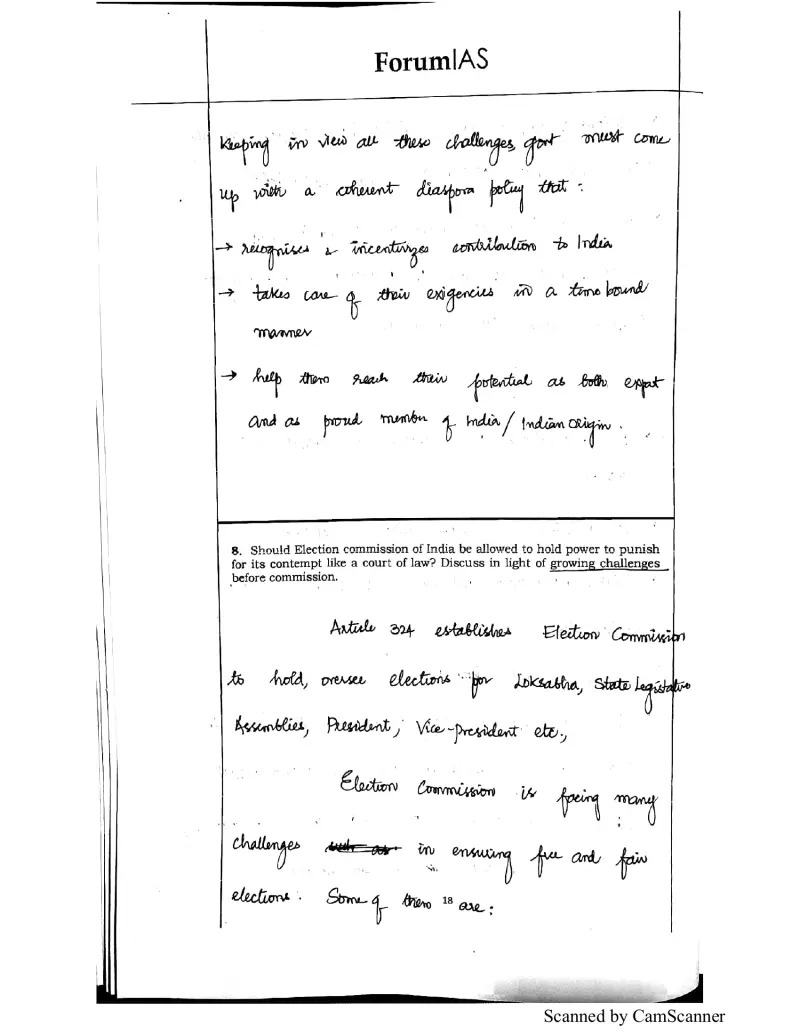 ForumIAS
Keeping in view all these challenges, govt must come
up with a coherent diaspora policy that :
→ recognises & incentivizes contribution to India
→ takes care of their exigencies in a time bound
manner
→ help them reach their potential as both expat
and as proud member of India / Indian Origin .
8. Should Election commission of India be allowed to hold power to punish
for its contempt like a court of law? Discuss in light of growing challenges
before commission.
Article 324 establishes Election Commission
to hold, oversee elections for Loksabha, State Legislative
Assemblies, President, Vice-president etc.,
Election Commission is facing many
challenges in ensuring free and fair
elections. Some of them are :
18
Scanned by CamScanner